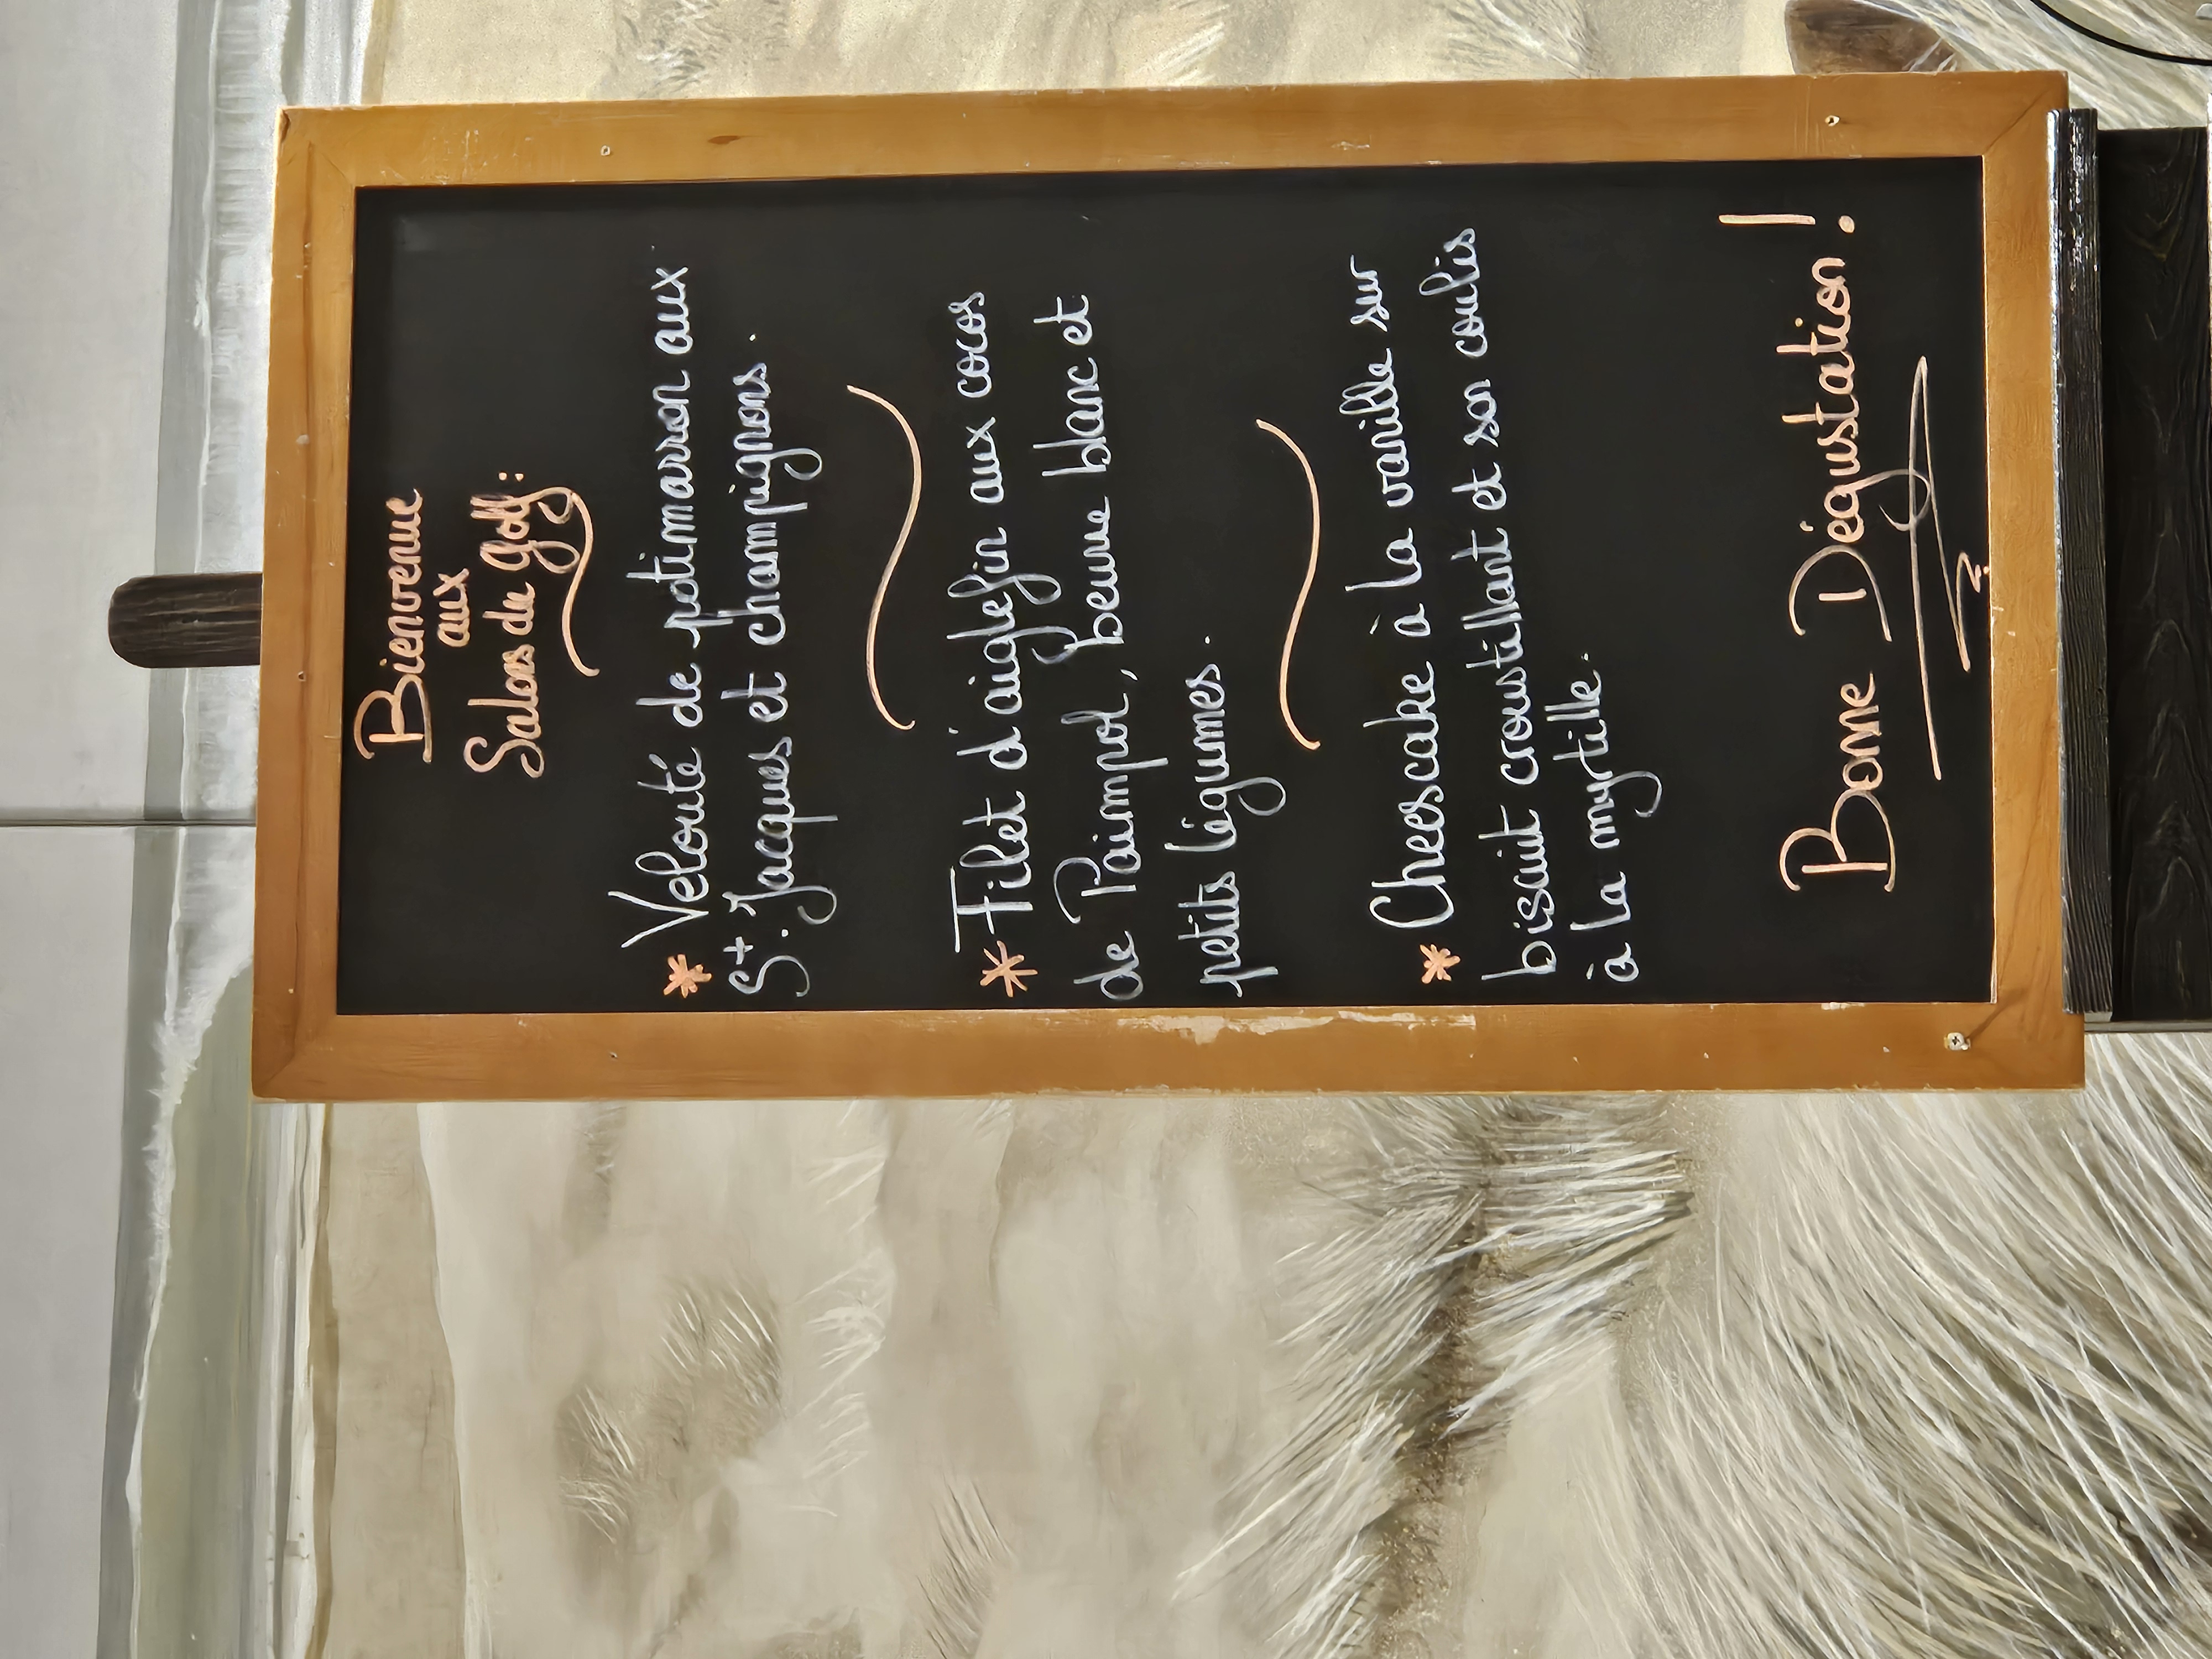 Bienvenue
aux
Salons du golf :
* Velouté de potimarron aux
St. Jacques et champignons.
* Filet d'aiglefin aux cocos
de Paimpol, beurre blanc et
petits légumes.
* Cheescake à la vanille sur
biscuit croustillant et son coulis
à la myrtille.
Bonne Dégustation !